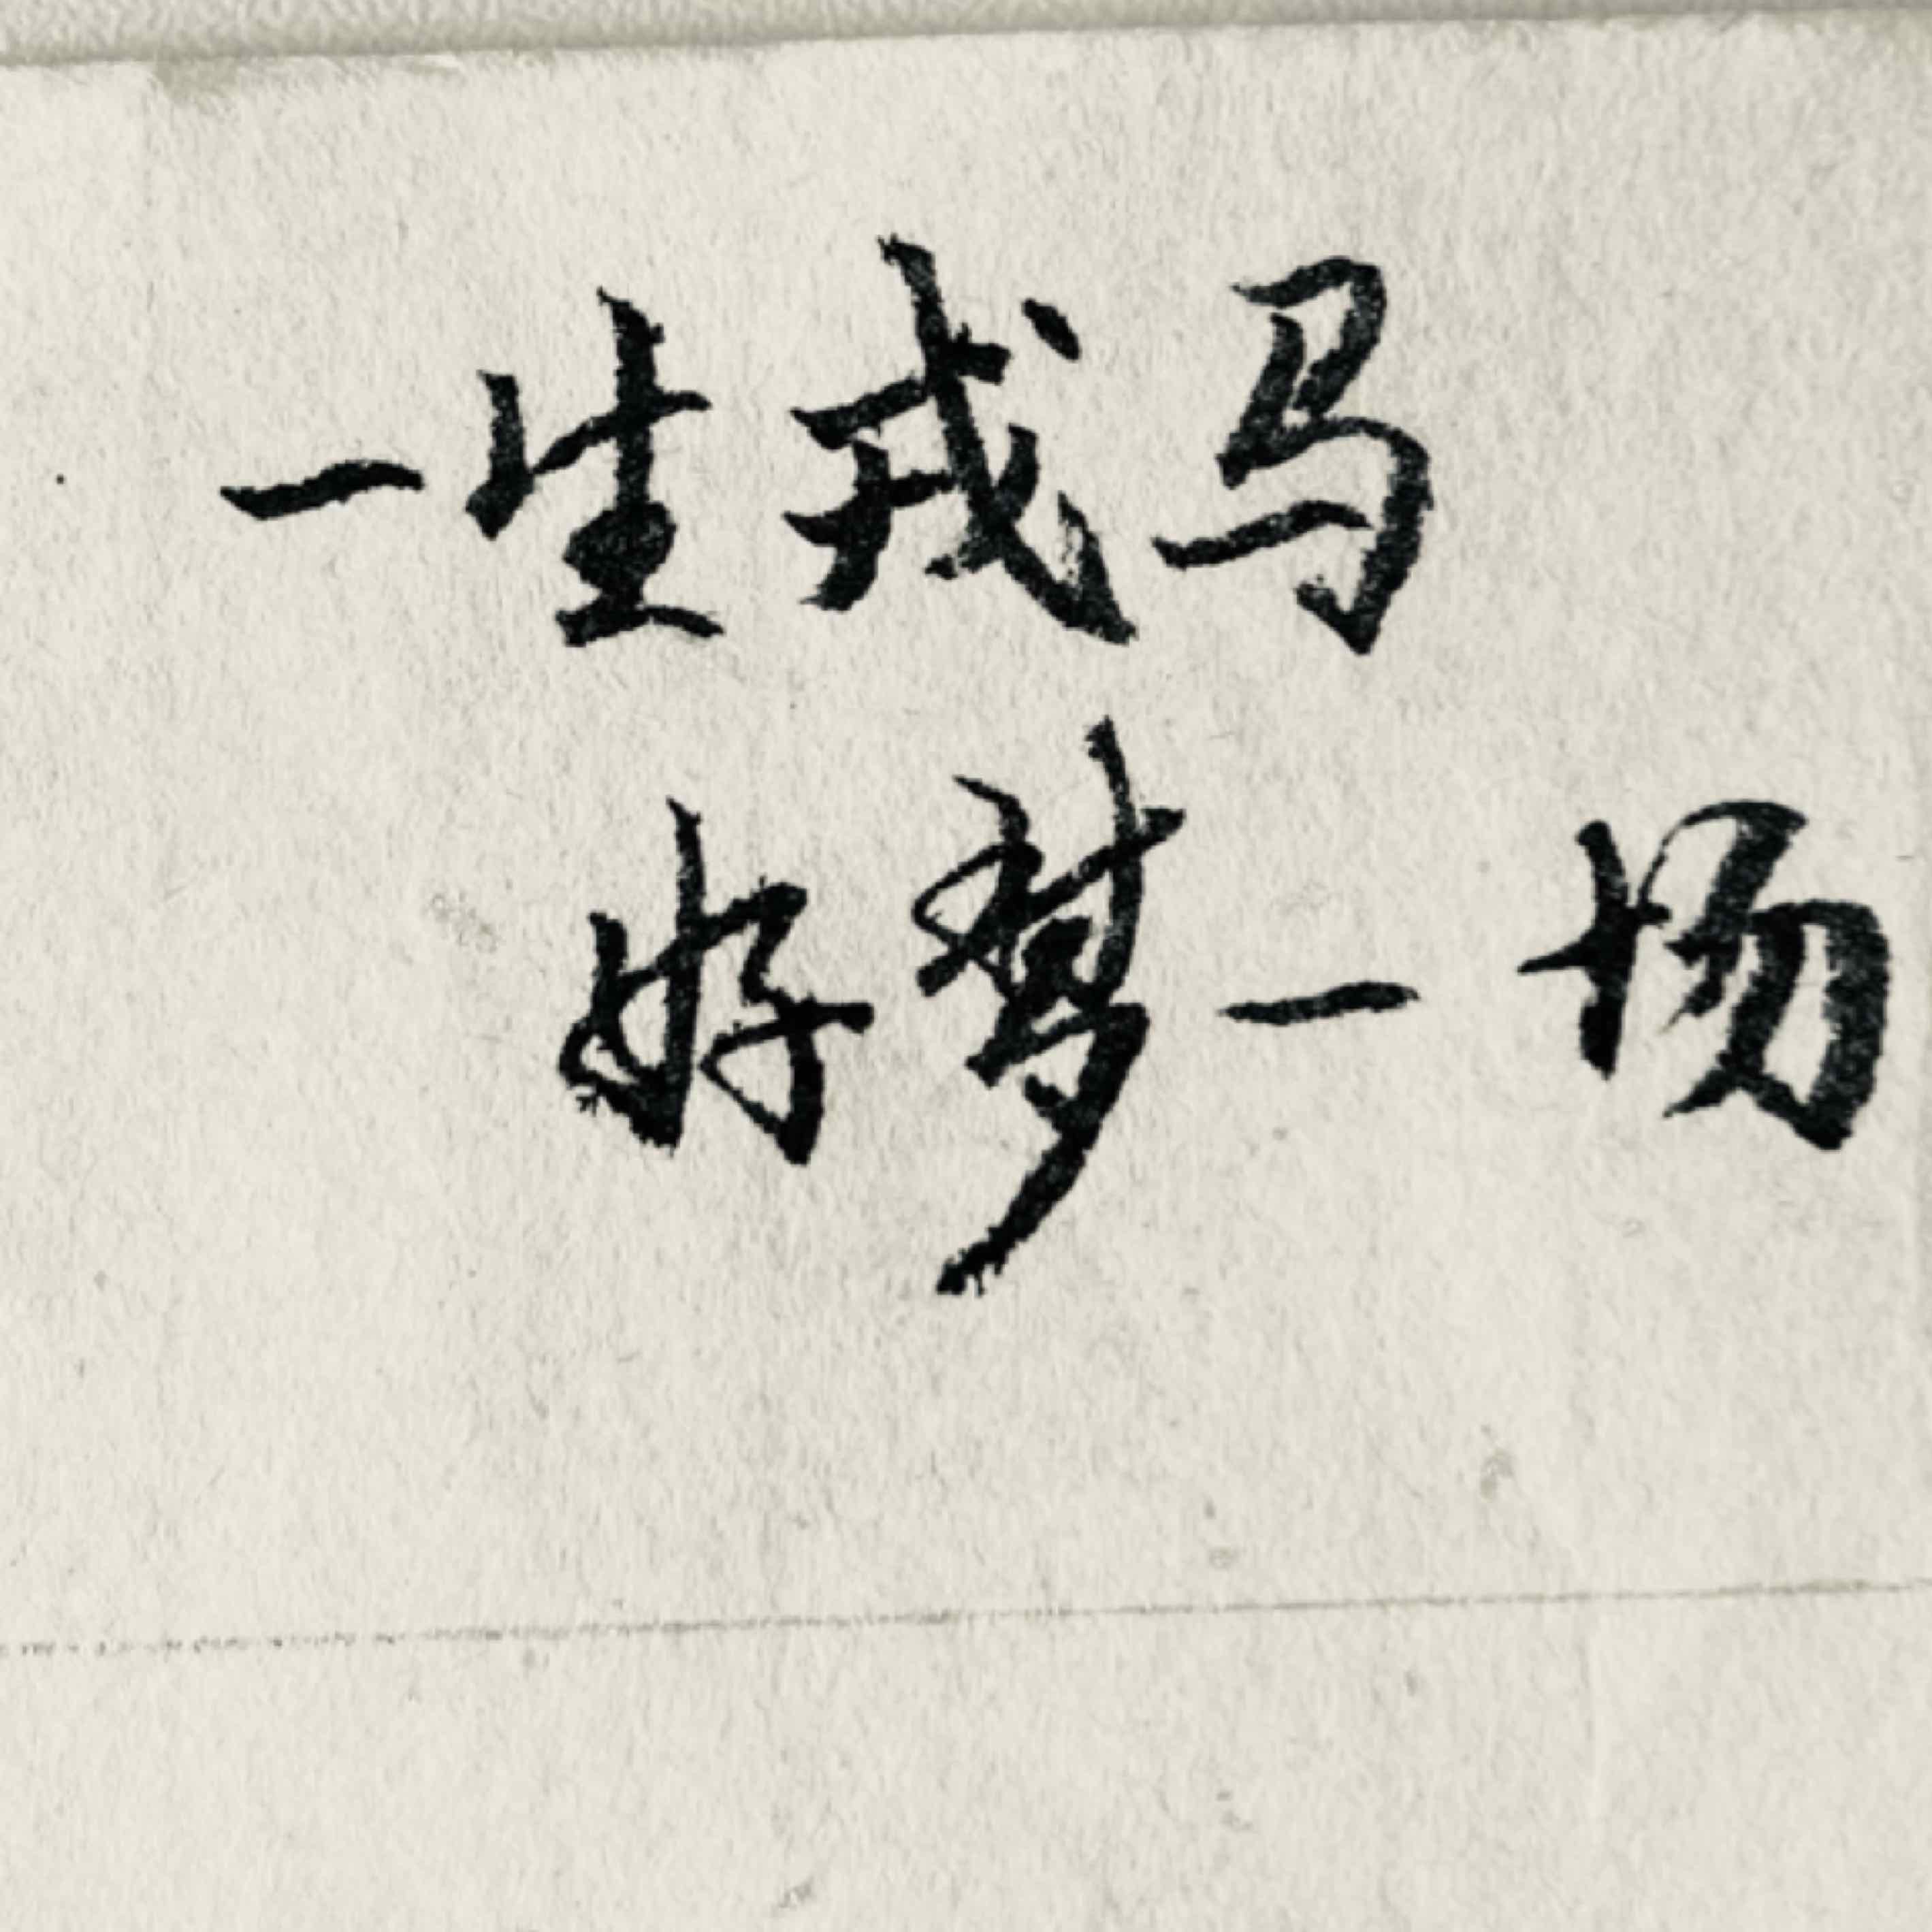 一生戎马
好梦一场